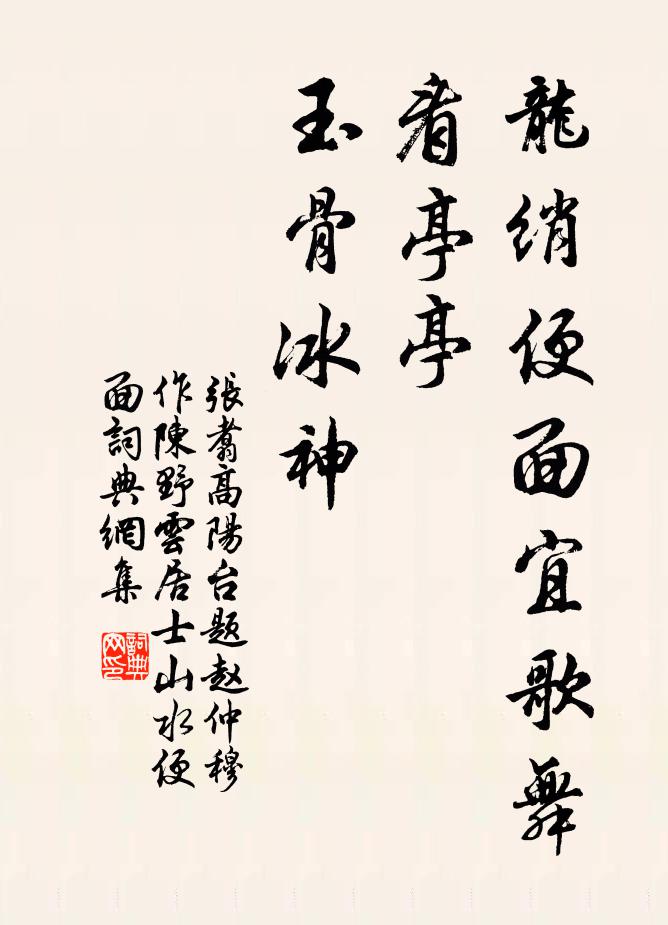 龍綃便面宜歌舞
看亭亭
玉骨冰神
張翥高陽台题赵仲穆
作陳野雲居士山水便
面詞典網集
詞典
网印